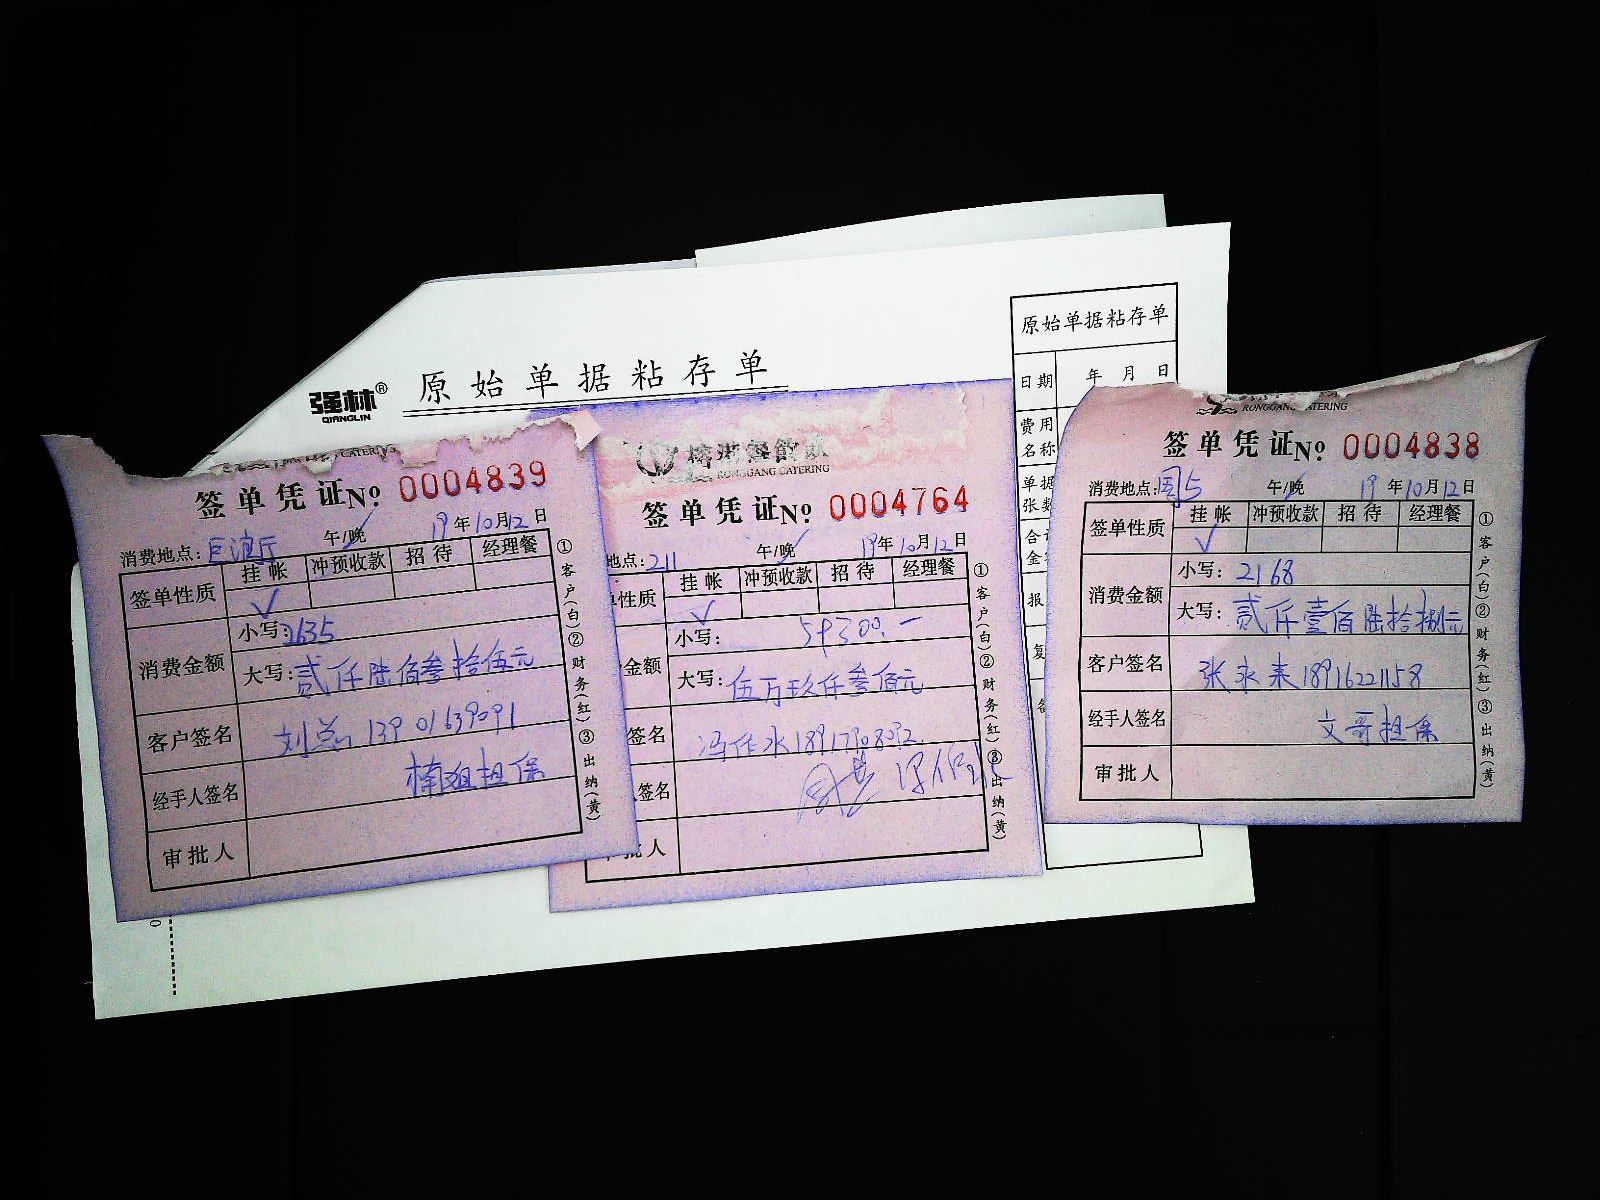 强林®
QIANGLIN
原始单据粘存单
原始单据粘存单
日期 年 月 日
费用
名称
单据
张数
合
金
报
复
签单凭证No 0004839
消费地点:巨浪厅 午/晚 19年10月12日
签单性质 挂帐 冲预收款 招待 经理餐
✓
消费金额 小写:2635
大写:贰仟陆佰叁拾伍元
客户签名 刘总 13901639091
经手人签名 楠姐担保
审批人
①客户(白)②财务(红)③出纳(黄)
RONGGANG CATERING
签单凭证No 0004764
地点:211 午/晚 19年10月12日
性质 挂帐 冲预收款 招待 经理餐
✓
金额 小写: 59300.—
大写:伍万玖仟叁佰元
签名 冯作水
签名
批人
①客户(白)②财务(红)③出纳(黄)
RONGGANG CATERING
签单凭证No 0004838
消费地点:周5 午/晚 19年10月12日
签单性质 挂帐 冲预收款 招待 经理餐
✓
消费金额 小写:2168
大写:贰仟壹佰陆拾捌元
客户签名 张永来18916221158
经手人签名 文哥担保
审批人
①客户(白)②财务(红)③出纳(黄)